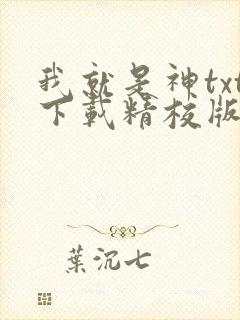 我就是神txt
下載精校版
葉沉七